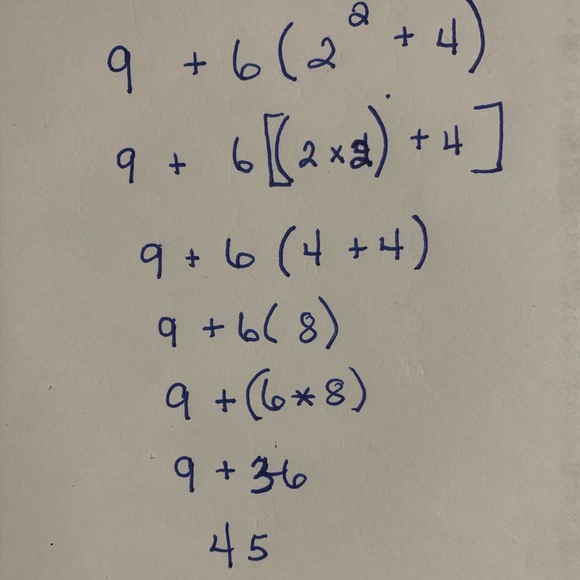 9 + 6(2² + 4)
9 + 6[(2×2) + 4]
9 + 6(4 + 4)
9 + 6(8)
9 + (6*8)
9 + 36
45